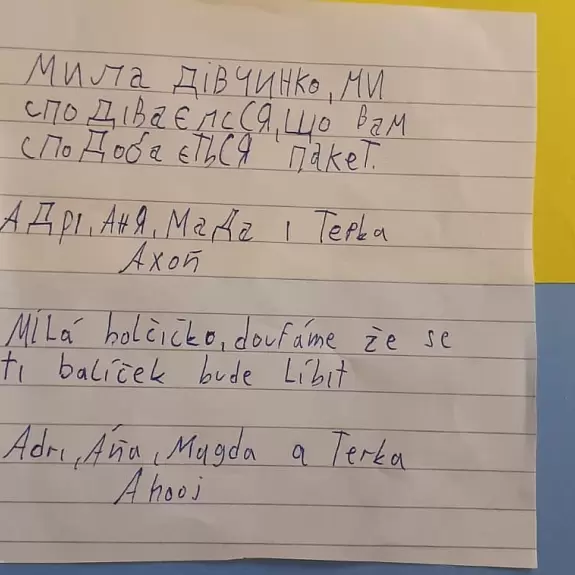 Мила дівчинко, ми
сподіваємсся, що вам
сподобається пакет.
Адрі, Аня, Мада і Терка
Ахой
Mílá holčičko, doufáme že se
ti balíček bude líbit
Adri, Áňa, Magda a Terka
Ahooj